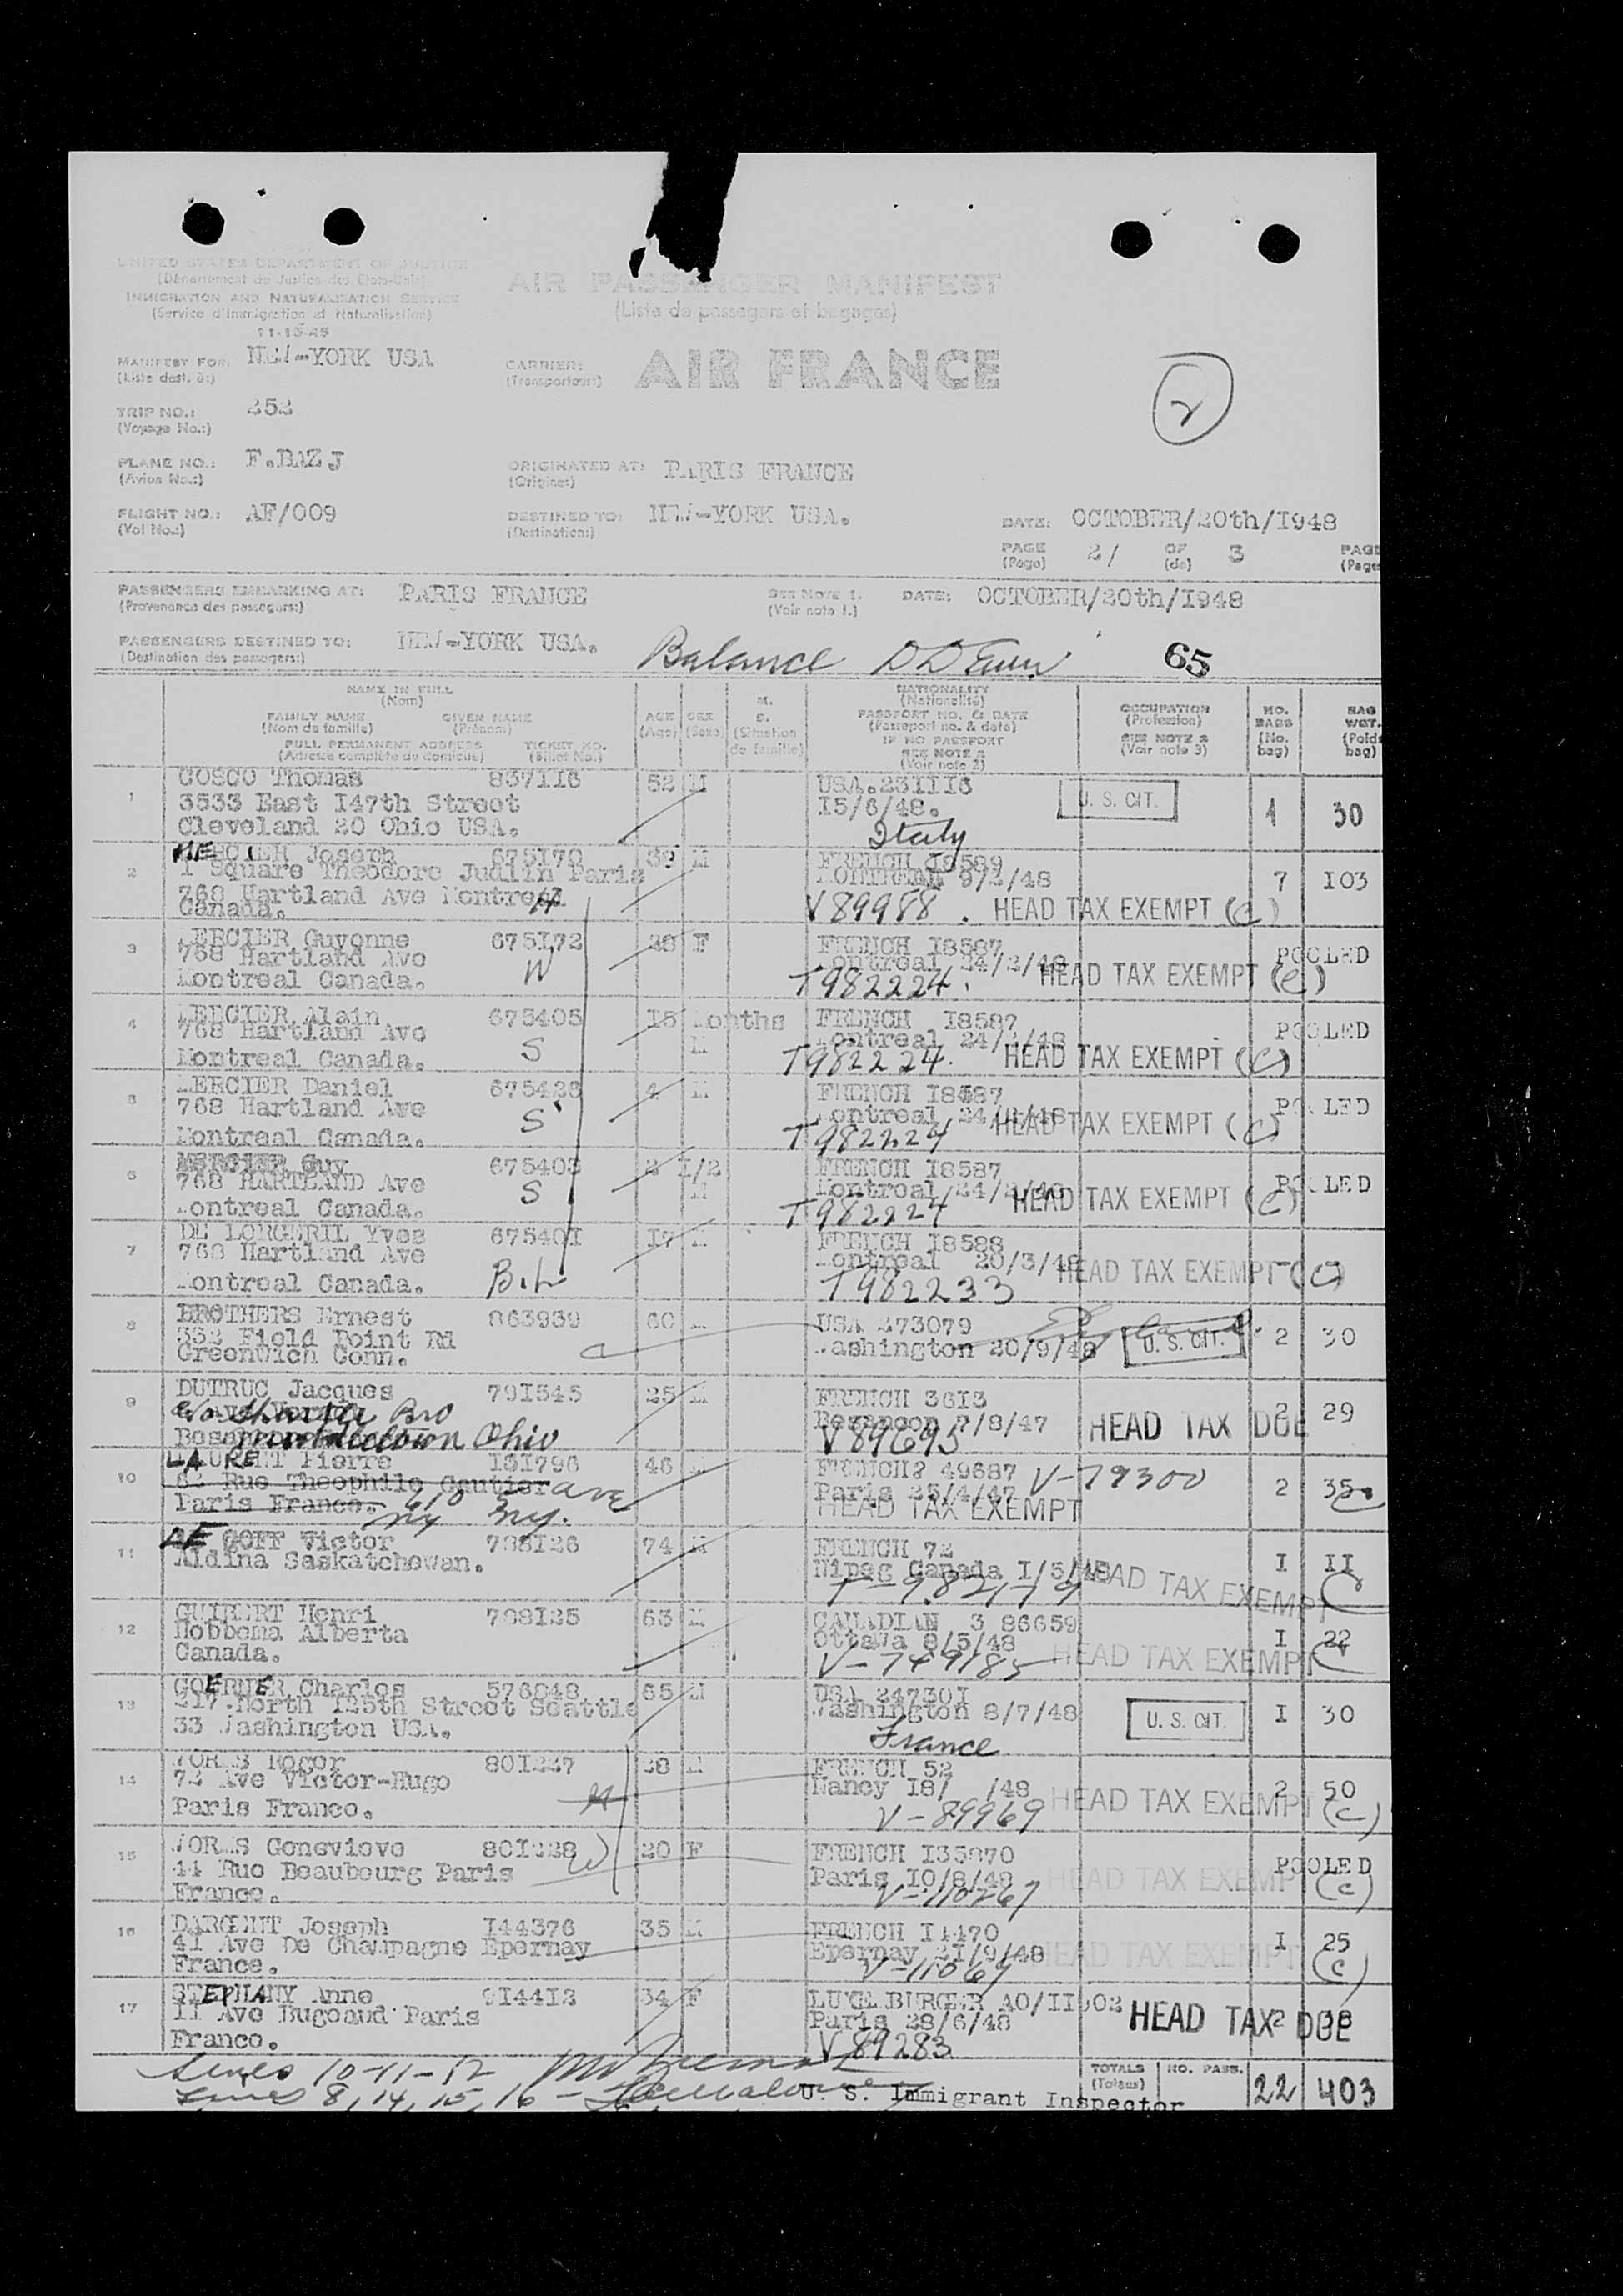 UNITED STATES DEPARTMENT OF JUSTICE
(Département de Justice des Etats-Unis)
IMMIGRATION AND NATURALISATION SERVICE
(Service d'Immigration et Naturalisation)
11-15-45
AIR PASSENGER MANIFEST
(Liste de passagers et bagages)
MANIFEST FOR: NEW-YORK USA
(Liste dest. à:)
CARRIER: AIR FRANCE
(Transporteur:)
2
TRIP NO.: 252
(Voyage No.:)
PLANE NO.: F.BAZJ
(Avion No.:)
ORIGINATED AT: PARIS FRANCE
(Origine:)
FLIGHT NO.: AF/009
(Vol No.:)
DESTINED TO: NEW-YORK USA.
(Destination:)
DATE: OCTOBER/20th/I948
PAGE 2/ OF 3 PAGE
(Page) (de) (Page
PASSENGERS EMBARKING AT: PARIS FRANCE SEE NOTE 1. DATE: OCTOBER/20th/I948
(Provenance des passagers:) (Voir note 1.)
PASSENGERS DESTINED TO: NEW-YORK USA. Balance 65
(Destination des passagers:)
NAME IN FULL
(Nom)
FAMILY NAME GIVEN NAME
(Nom de famille) (Prénom)
FULL PERMANENT ADDRESS TICKET NO.
(Adresse complète du domicile) (Billet No.)
AGE SEX
(Age) (Sexe)
M. S. (Situation de famille)
NATIONALITY
(Nationalité)
PASSPORT NO. & DATE
(Passeport no. & date)
IF NO PASSPORT
SEE NOTE 2
(Voir note 2)
OCCUPATION
(Profession)
SEE NOTE 3
(Voir note 3)
NO. BAGS (No. bag)
BAG WGT. (Poids bag)
1 COSCO Thomas 837II6 52 M USA.23III6 U. S. CIT. 1 30
3533 East I47th Street I5/6/48.
Cleveland 20 Ohio USA. Italy
2 MERCIER Joseph 675I70 39 M FRENCH I8589 7 I03
1 Square Theodore Judlin Paris MONTREAL 9/2/48
768 Hartland Ave Montreal H
Canada. V89988. HEAD TAX EXEMPT (C)
3 MERCIER Guyonne 675I72 28 F FRENCH I8587 POOLED
768 Hartland Ave W Montreal 24/2/48 HEAD TAX EXEMPT (C)
Montreal Canada. T982224.
4 MERCIER Alain 675405 I5 Months FRENCH I8587 POOLED
768 Hartland Ave M Montreal 24/2/48
Montreal Canada. S T982224. HEAD TAX EXEMPT (C)
5 MERCIER Daniel 675426 4 M FRENCH I8587 POOLED
768 Hartland Ave S Montreal 24/2/48 HEAD TAX EXEMPT (C)
Montreal Canada. T982224
6 MERCIER Guy 675403 2 I/2 FRENCH I8587 POOLED
768 HARTLAND Ave S M Montreal 24/2/48 HEAD TAX EXEMPT (C)
Montreal Canada. T982224
7 DE LORGERIL Yves 67540I I7 M FRENCH I8588
768 Hartland Ave Montreal 20/3/48 HEAD TAX EXEMPT (C)
Montreal Canada. B.L T982233
8 BROTHERS Ernest 863939 60 M USA 273079 2 30
352 Field Point Rd Washington 20/9/48 U. S. CIT.
Greenwich Conn.
9 DUTRUC Jacques 79I545 25 M FRENCH 36I3 2 29
Besancon 7/8/47 HEAD TAX DUE
Middletown Ohio V89695
10 LAURENT Pierre I3I796 46 M FRENCH 49687 V-79300 2 35
62 Rue Theophile Gautier Paris 25/4/47
Paris France. 610 5 ave HEAD TAX EXEMPT
NY NY.
11 LE GOFF Victor 798I26 74 M FRENCH 72 I II
Aldina Saskatchewan. Nipeg Canada I/5/48 HEAD TAX EXEMPT
T-982179 C
12 GUIBERT Henri 798I25 63 M CANADIAN 3 86659 I 22
Hobbema Alberta Ottawa 8/5/48 HEAD TAX EXEMPT C
Canada. V-749185
13 GOERNER Charles 576848 65 M USA 24730I I 30
217 North I25th Street Seattle Washington 8/7/48 U. S. CIT.
33 Washington USA. France
14 WORMS Roger 80I227 28 M FRENCH 52 2 50
72 Ave Victor-Hugo Nancy I8/ /48 HEAD TAX EXEMPT (C)
Paris France. H V-89969
15 WORMS Genevieve 80I228 20 F FRENCH I35070 POOLED
44 Rue Beaubourg Paris W Paris I0/8/48 HEAD TAX EXEMPT (C)
France. V-110267
16 DARGENT Joseph I44376 35 M FRENCH I4470 I 25
41 Ave De Champagne Epernay Epernay 2I/9/48 HEAD TAX EXEMPT (C)
France. V-11069
17 STEPHANY Anne 9I44I2 34 F LUXEMBURGER A0/II902 2 38
11 Ave Bugeaud Paris Paris 28/6/48 HEAD TAX DUE
France. V89283
Lines 10-11-12
Lines 8, 14, 15, 16 - U. S. Immigrant Inspector
TOTALS NO. PASS. 22 403
(Totaux)